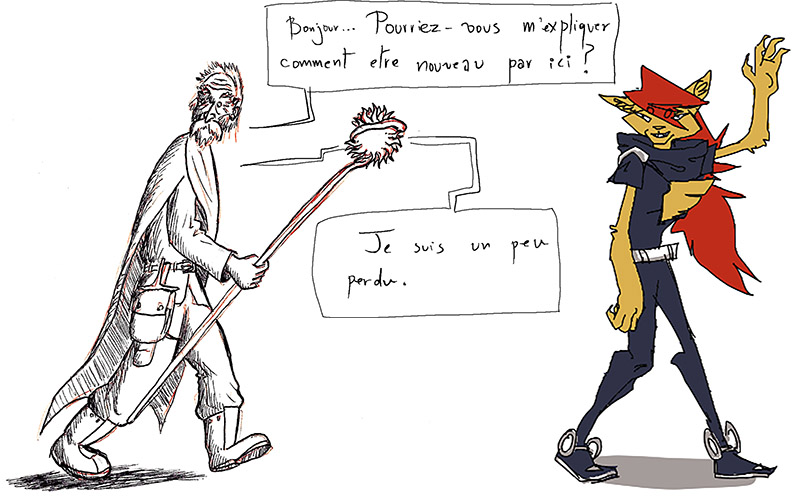 Bonjour... Pourriez-vous m'expliquer
comment etre nouveau par ici ?
Je suis un peu
perdu.